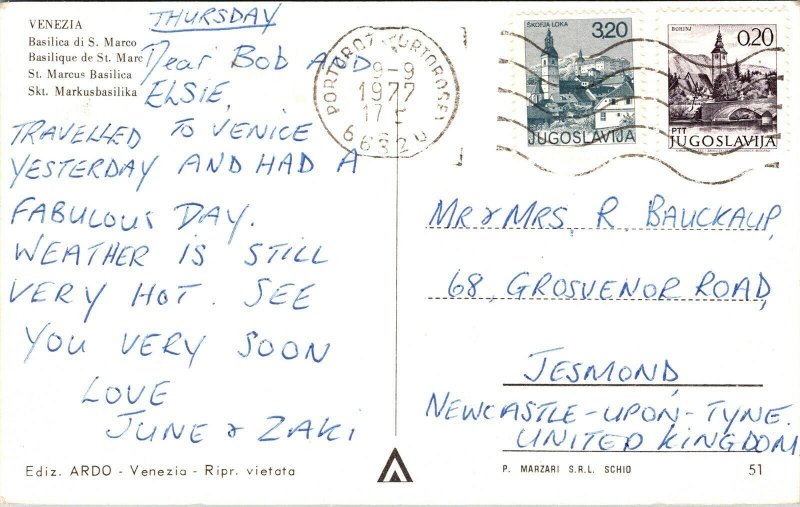 VENEZIA
Basilica di S. Marco
Basilique de St. Marc
St. Marcus Basilica
Skt. Markusbasilika
THURSDAY
Dear BOB AND
ELSIE,
TRAVELLED TO VENICE
YESTERDAY AND HAD A
FABULOUS DAY.
WEATHER IS STILL
VERY HOT. SEE
YOU VERY SOON
LOVE
JUNE & ZAKI
Ediz. ARDO - Venezia - Ripr. vietata
PORTOROŽ PORTOROSE
9-9
1977
17
66320
ŠKOFJA LOKA
3,20
JUGOSLAVIJA
BOHINJ
0,20
PTT
JUGOSLAVIJA
MR & MRS. R. BAUCKAUP,
68, GROSVENOR ROAD,
JESMOND,
NEWCASTLE-UPON-TYNE.
UNITED KINGDOM
P. MARZARI S.R.L. SCHIO
51